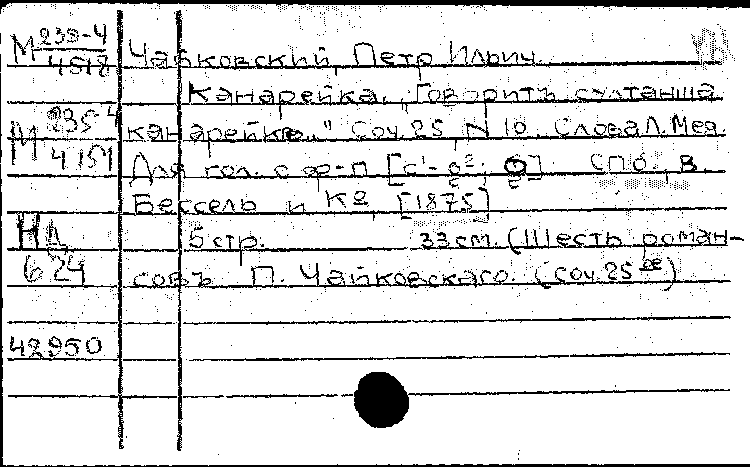 М 239-4
4518
Чайковский, Петр Ильич.
Канарейка. "Говоритъ султанша
М 235-4
4151
канарейке..." Соч. 25, N 10. Слова Л. Мея
Для гол. с ф-п [c¹-g²; G] СПб., В.
Бессель и Кº, [1875]
НД
624
5 стр. 33 см. (Шесть роман-
совъ П. Чайковскаго. (Соч. 25ое)
42950